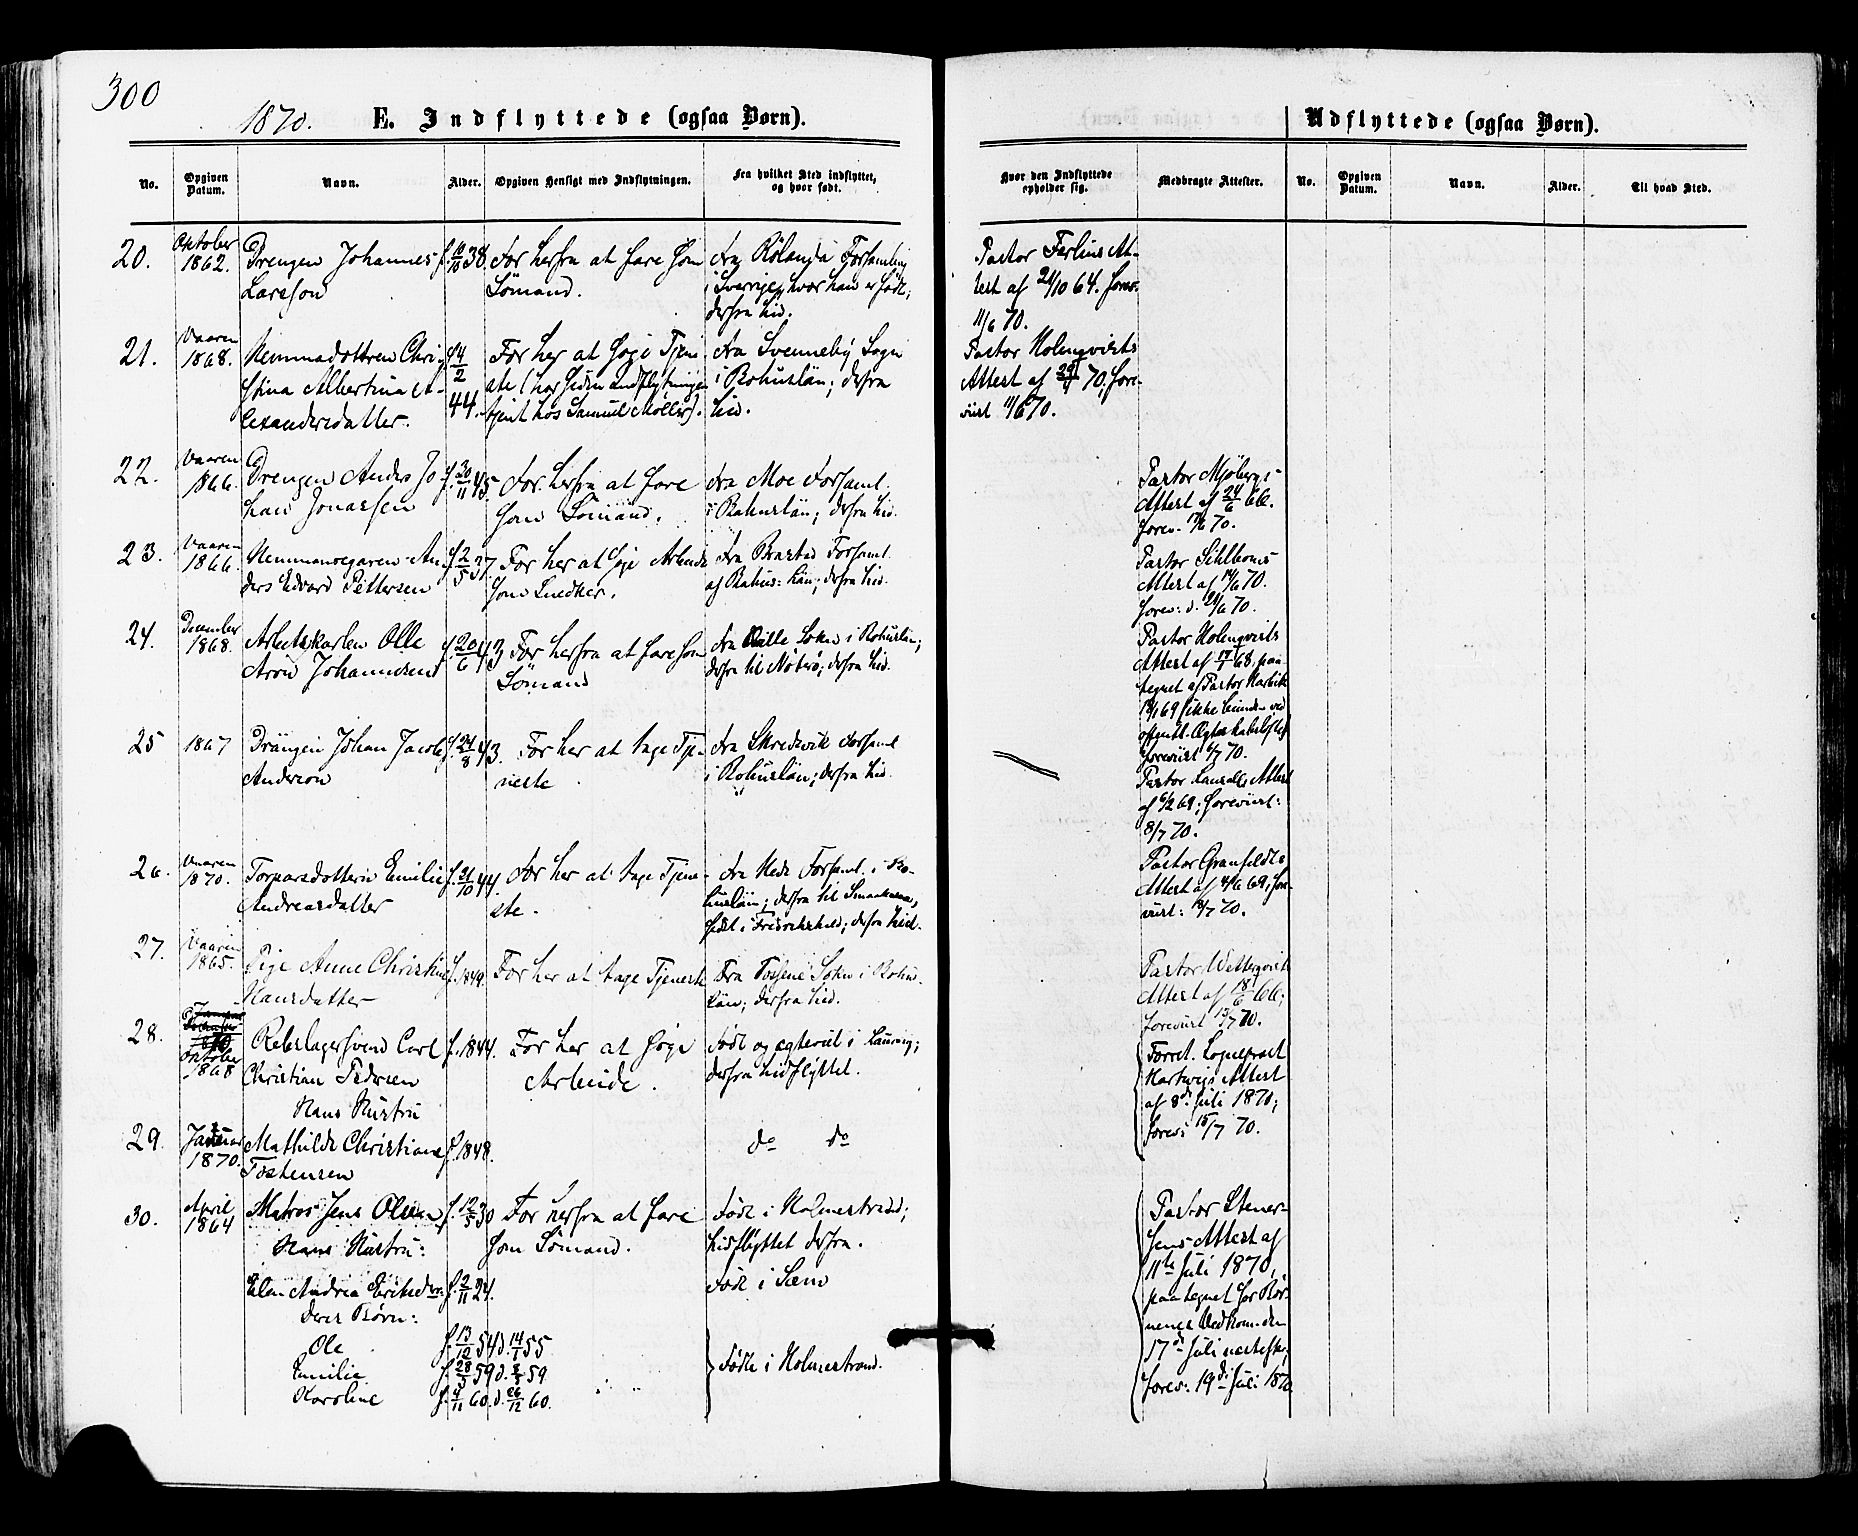 300
1870. E. Indflyttede (ogsaa Børn).
Udflyttede (ogsaa Børn).
No. Opgiven Datum. Navn. Alder. Opgiven Hensigt med Indflytningen. Fra hvilket Sted indflyttet, og hvor født.
Hvor den Indflyttede opholder sig. Medbragte Attester. No. Opgiven Datum. Navn. Alder. Til hvad Sted.
20. Oktober 1862.
Drengen Johannes
Larsson
38.
For herfra at fare som
Sömand.
Fra Rölanda Forsamling
i Sverrige, hvor han er født;
derfra hid.
Pastor Ferlins At-
test af 21/10 64. forev.
11/6 70.
21. Vaaren 1868.
Hemmadottren Chri-
stina Albertina A-
lexandersdatter.
f. 4/2
44.
For her at søge Tjene-
ste (har siden Indflytningen
tjent hos Samuel Møller).
Fra Svenneby Sogn
i Bohuslän; derfra
hid.
Pastor Holmqvists
Attest af 29/4 70; fore-
viist 11/6 70.
22. Vaaren 1866.
Drengen Anders Jo
han Jonassen
f. 30/11 45.
For herfra at fare
som Sömand.
Fra Moe Forsaml.
i Bohuslän; derfra hid.
Pastor Mjöbergs
Attest af 24/6 66.
forev. 17/6 70.
23. Vaaren 1866.
Hemmansegaren An-
ders Edvard Pettersen
f. 2/5 37.
For her at søge Arbeide
som Snedker.
Fra Brastad Forsaml.
af Bohus: län; derfra hid.
Pastor Sihlboms
Attest af 14/6 70.
forev: d. 21/6 70.
24. December 1868.
Arbetskarlen Olle
Aron Johannesen
f. 20/6 43
For herfra at fare som
Sömand
Fra Qville Sokn i Bohuslän;
derfra til Nøterø; derfra hid.
Pastor Holmqvists
Attest af 68, paa-
tegnet af Pastor
69 (ikke bunden ved
offentl. Ægteskabsløfte)
foreviist 4/7 70.
25 1867
Drängen Johan Jacob
Anderson
f. 24/8 43.
For her at tage Tje-
neste
Fra Skredsvik Forsaml
i Bohuslän; derfra hid.
Pastor Attest
af 6/2 69; foreviist:
8/7 70.
26. Vaaren 1870.
Torparedotteren Emilie
Andreasdatter
f. 21/10 44.
For her at tage Tjene-
ste.
Fra Hede Forsaml. i Bo-
huslän; derfra til Smaalenene,
født i Fredrikshald; derfra hid.
Pastor Granfeldts
Attest af 4/6 69; fore-
viist: 70.
27. Vaaren 1865.
Pige Anne Christine
Hansdatter
f. 1849.
For her at tage Tjeneste
Fra Tossene Sokn i Bohus-
län; derfra hid.
Pastor Wetterqvists
Attest af 18/6 66;
foreviist 13/7 70.
28. Oktober 1868
Rebslagersvend Carl
Christian Pedersen
f. 1844.
For her at søge
Arbeide.
Født og ægteviet i Laurvig;
derfra hidflyttet.
Forret. Sognepræst
Hartwigs Attest
af 8de Juli 1870;
forev: 15/7 70.
Hans Hustru
29. Januar 1870.
Mathilde Christiane
Tostensen
f. 1848.
do do
30. April 1864
Matros Jens Olsen
f. 12/5 30
For herfra at fare
som Sömand.
Født i Holmestrand;
hidflyttet derfra.
Pastor Stener-
sens Attest af
11te Juli 1870,
paategnet for Bør-
nenes Vedkom. den
17de Juli næstefter;
forev: 19de Juli 1870
Hans Hustru:
Elen Andrea Eriksdtr.
f. 2/11 24.
Født i Sem
Deres Børn:
Ole f. 13/12 54 d. 14/1 55
Emilie f. 28/5 59 d. 59
Karoline f. 4/11 60. d. 26/12 60.
Født i Holmestrand.